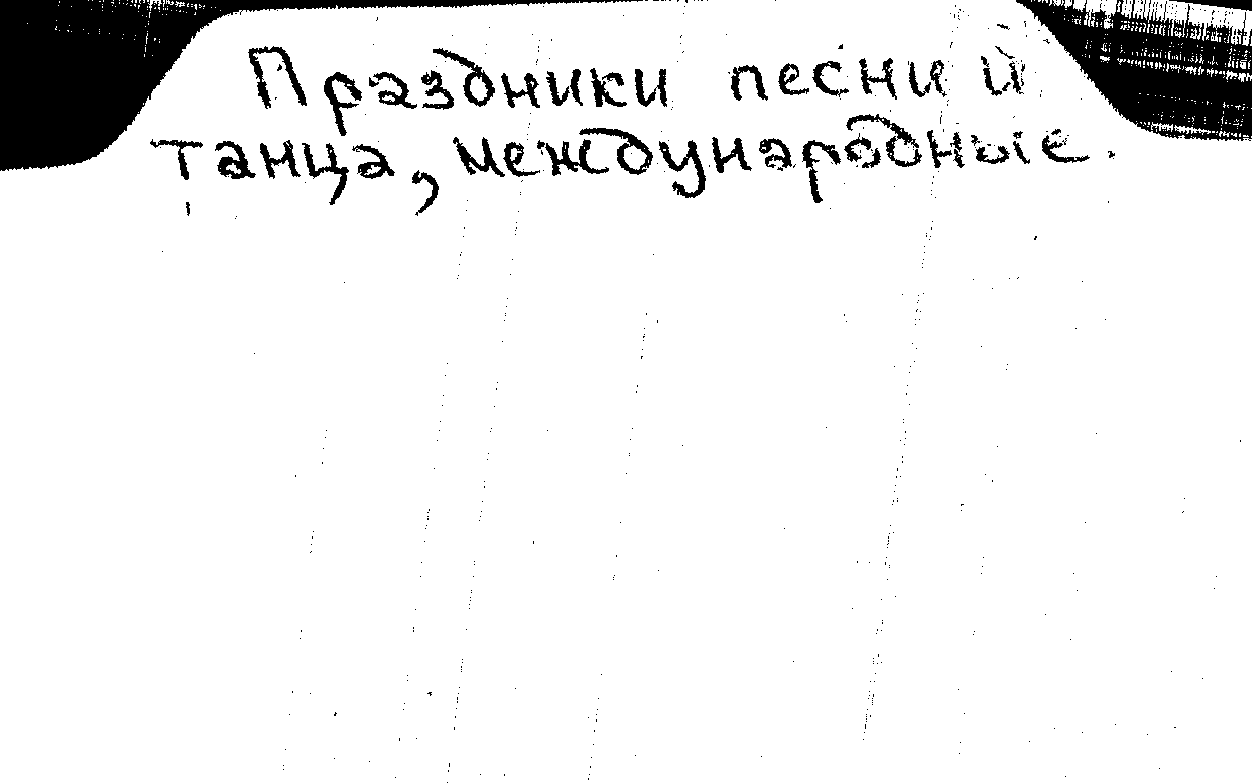 Праздники песни и
танца, международные.